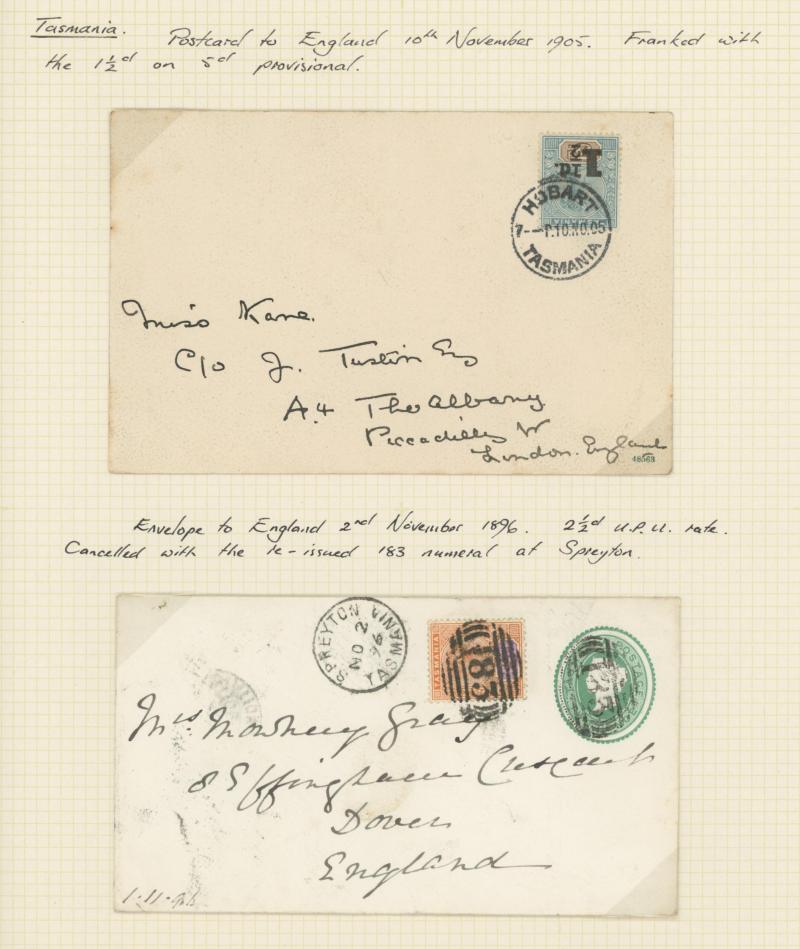 Tasmania. Postcard to England 10th November 1905. Franked with
the 1½d on 5d provisional.
1½d.
HOBART
7-- P.10.NO.05
TASMANIA
Miss Kane.
C/o J. Tustin Esq
A.4 The Albany
Piccadilly W
London. England
48563
Envelope to England 2nd November 1896. 2½d U.P.U. rate.
Cancelled with the re-issued 183 numeral at Spreyton.
SPREYTON TASMANIA
NO 2
96
TASMANIA
183
POSTAGE
Mrs Gray
8 Effingham Crescent
Dover
England
1-11-96